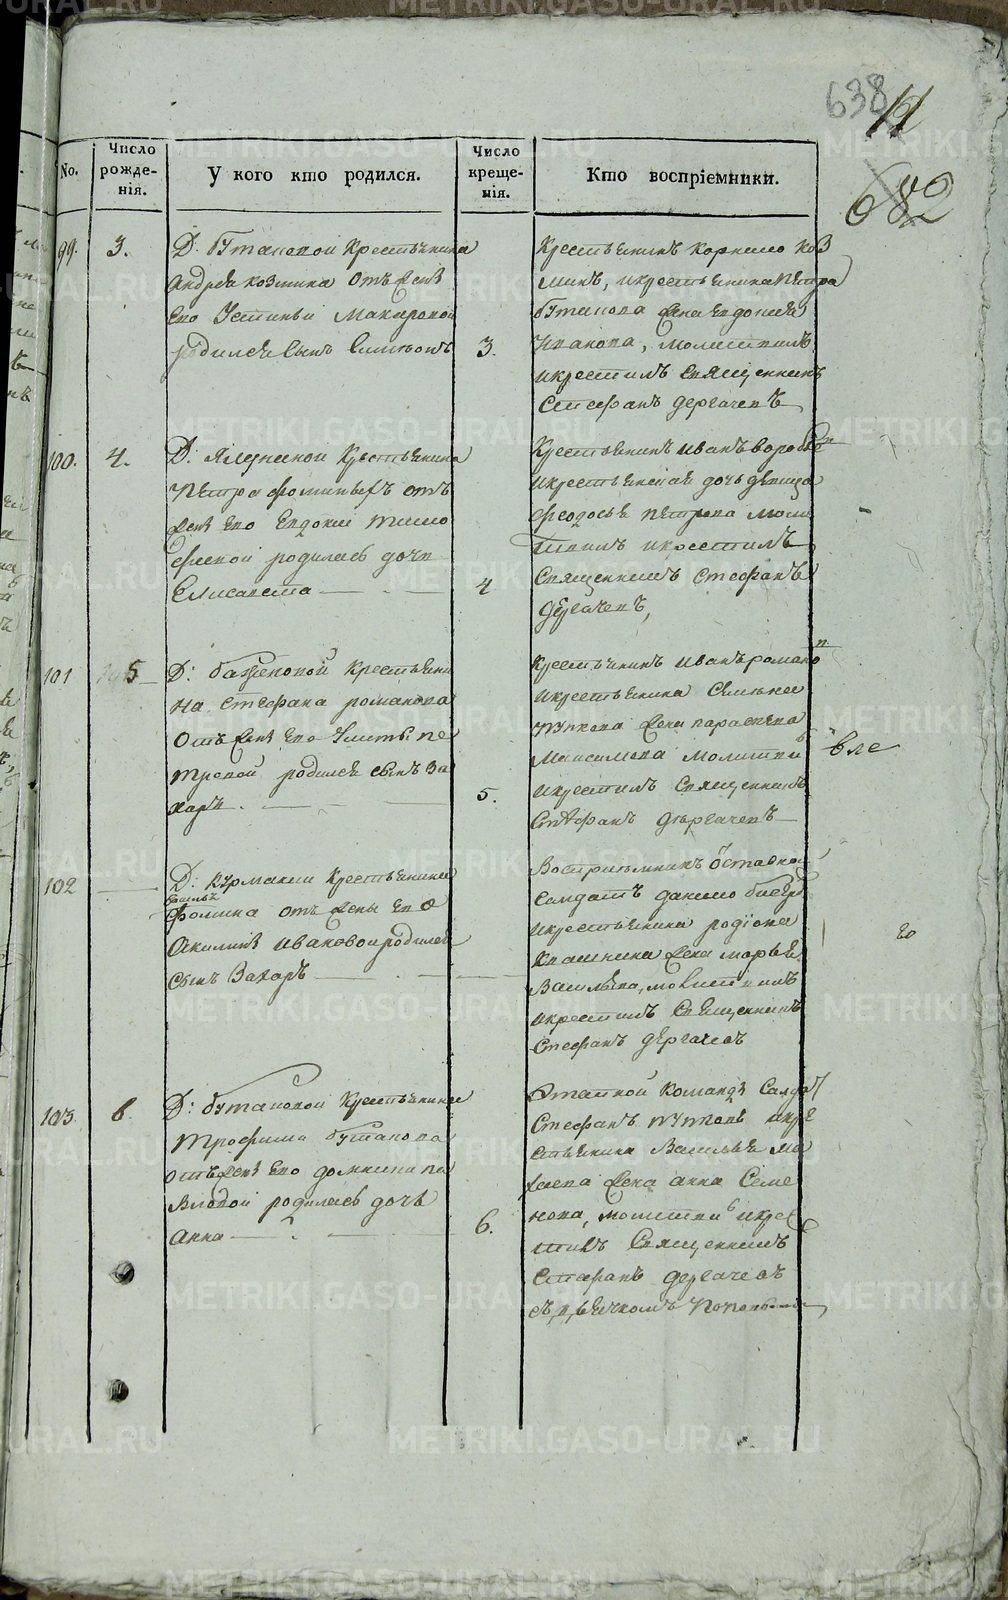 638
11
682
No.
Число рожде-нія.
У кого кто родился.
Число креще-нія.
Кто воспріемники.
99.
3.
Д. Бутаковой крестьянина
андрея козмина отъ жены
его Устиньи Макаровой
родился сынъ
3.
Крестьянинъ корнило коз
минъ, и крестьянина петра
бутакова жена евдокия
иванова, молитвилъ
и крестилъ священникъ
Стефанъ дергачевъ
100.
4.
Д: Ялуниной крестьянина
петра фоминыхъ отъ
жены его Евдокии тимо
феевой родилась дочь
Елисавета
4
Крестьянинъ иванъ воробье
и крестьянская дочь девица
феодосья петрова моли
твилъ и крестилъ
Священникъ стефанъ
дергачевъ,
101
5
Д: баженовой крестьяни
на стефана романова
отъ жены его Улиты пе
тровой родился сынъ За
харъ.
5.
крестьянинъ иванъ романо
и крестьянина
жена параскева
Максимова молитви
и крестилъ священникъ
Стефанъ дергачевъ
вле
102
Д: Курмании крестьянина
фомина отъ жены его
Акилины ивановой родился
сынъ Захаръ
Восприемникъ отставной
Солдатъ данило
и крестьянина родіона
квашнина жена марья
Васильева, молитвилъ
и крестилъ Священникъ
Стефанъ дергачевъ
го
103
6.
Д: бутаковой крестьянина
трофима бутакова
отъ жены его домники па
вловой родилась дочь
Анна
6.
Этатной команды Салда
Стефанъ и кре
стьянина Василья ма
жена анна Семе
нова, молитви и крес
тилъ Священникъ
Стефанъ дергачевъ
METRIKI.GASO-URAL.RU